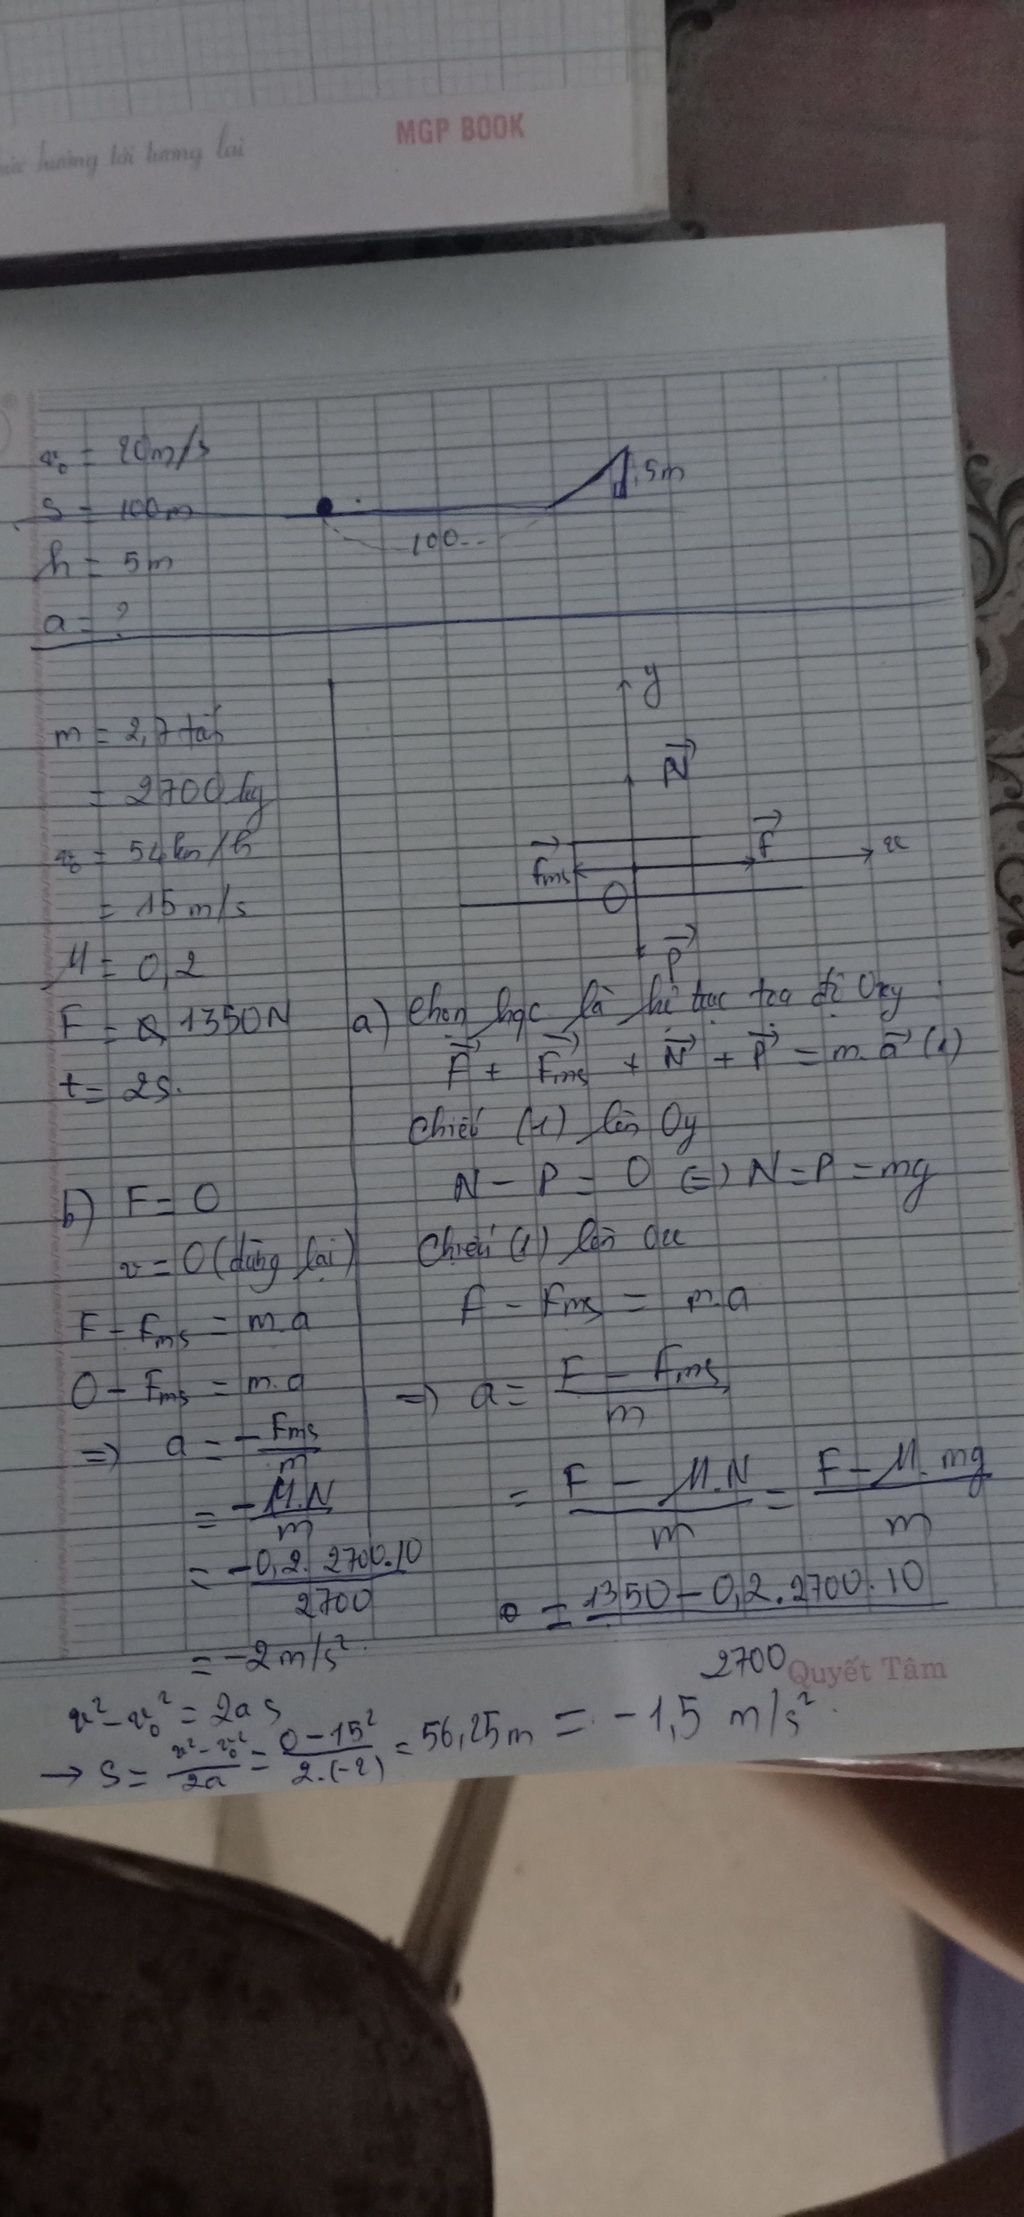 hức hướng tới tương lai
MGP BOOK
v₀ = 20m/s
s = 100m
h = 5m
a = ?
5m
100
m = 2,7 tấn
= 2700 kg
v₀ = 54km/h
= 15 m/s
μ = 0,2
F = 1350N
t = 2s.
y
N
Fms
F
x
O
P
a) Chọn hqc là hệ trục tọa độ Oxy
F + Fms + N + P = m.a (1)
Chiếu (1) lên Oy
N - P = 0 (=) N = P = mg
Chiếu (1) lên Ox
F - Fms = m.a
=) a = F - Fms / m
= F - μ.N / m = F - μ.mg / m
= 1350 - 0,2.2700.10 / 2700
= -1,5 m/s²
b) F = 0
v = 0 (dừng lại)
F - Fms = m.a
0 - Fms = m.a
=) a = -Fms / m
= -μ.N / m
= -0,2.2700.10 / 2700
= -2m/s²
v² - v₀² = 2as
→ s = v² - v₀² / 2a = 0 - 15² / 2.(-2) = 56,25m
Quyết Tâm